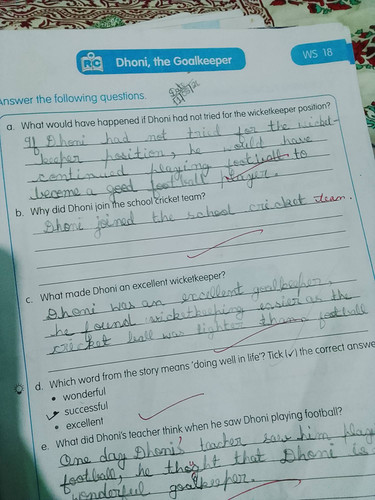 Dhoni, the Goalkeeper
WS 18
Answer the following questions.
a. What would have happened if Dhoni had not tried for the wicketkeeper position?
If Dhoni had not tried for the wicket-
keeper position, he would have
continued playing football to
become a good football player.
b. Why did Dhoni join the school cricket team?
Dhoni joined the school cricket team.
c. What made Dhoni an excellent wicketkeeper?
Dhoni was an excellent goalkeeper,
he found wicketkeeping easier as the
cricket ball was lighter than football
d. Which word from the story means 'doing well in life'? Tick (✓) the correct answe
• wonderful
• successful
• excellent
e. What did Dhoni's teacher think when he saw Dhoni playing football?
One day Dhoni's teacher saw him play
football, he thought that Dhoni is
wonderful goalkeeper.